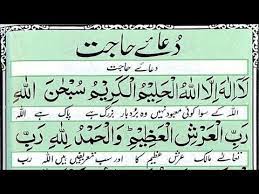 دُعائے حاجت
دعائے حاجت
لَا اِلٰهَ اِلَّا اللهُ الْحَلِيْمُ الْكَرِيْمُ سُبْحٰنَ اللهِ
اللہ کے سوا کوئی معبود نہیں وہ بردبار بزرگ ہے پاک ہے اللہ
رَبِّ الْعَرْشِ الْعَظِيْمِ وَالْحَمْدُ لِلّٰهِ رَبِّ
مالک عرش عظیم کا اور سب تعریفیں ہیں اللہ رب